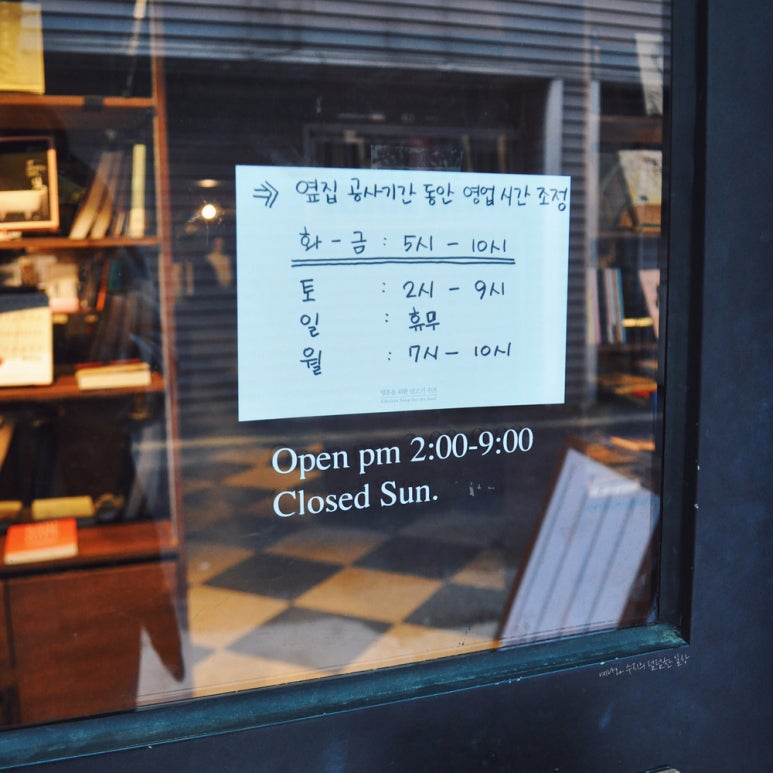 ⇒ 옆집 공사기간 동안 영업시간 조정
화 - 금 : 5시 - 10시
토 : 2시 - 9시
일 : 휴무
월 : 7시 - 10시
영혼을 위한 닭고기 수프
Chicken Soup for the Soul
Open pm 2:00-9:00
Closed Sun.
수지의 덤덤한 일상